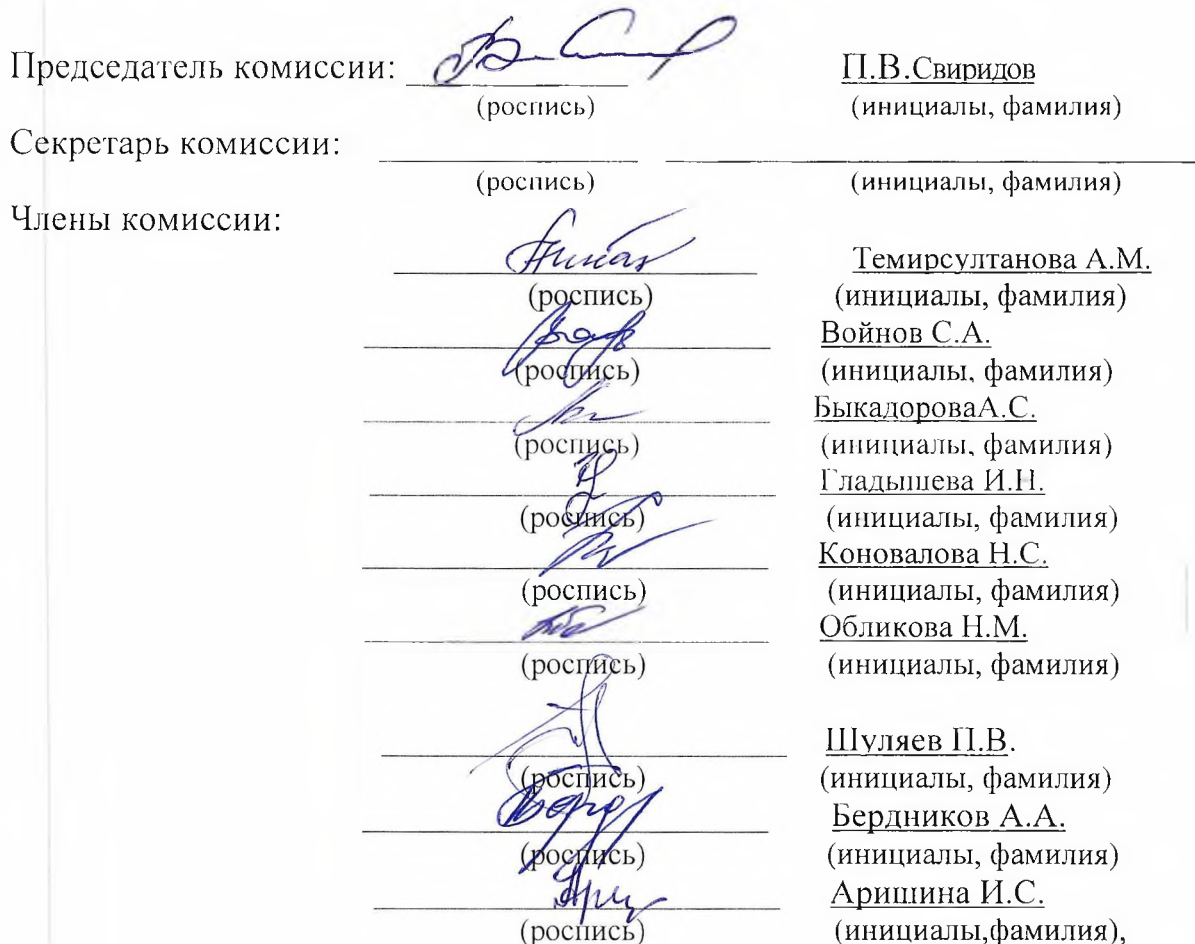 Председатель комиссии: П.В.Свиридов
(роспись) (инициалы, фамилия)
Секретарь комиссии:
(роспись) (инициалы, фамилия)
Члены комиссии:
Темирсултанова А.М.
(роспись) (инициалы, фамилия)
Войнов С.А.
(роспись) (инициалы, фамилия)
БыкадороваА.С.
(роспись) (инициалы, фамилия)
Гладышева И.Н.
(роспись) (инициалы, фамилия)
Коновалова Н.С.
(роспись) (инициалы, фамилия)
Обликова Н.М.
(роспись) (инициалы, фамилия)
Шуляев П.В.
(роспись) (инициалы, фамилия)
Бердников А.А.
(роспись) (инициалы, фамилия)
Аришина И.С.
(роспись) (инициалы,фамилия),